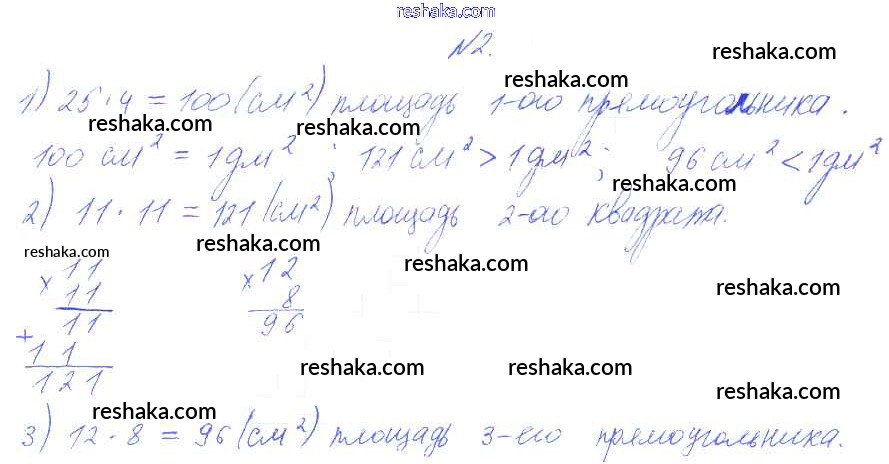 reshaka.com
№2.
reshaka.com reshaka.com
1) 25·4 = 100 (см²) площадь 1-ого прямоугольника.
reshaka.com reshaka.com
100 см² = 1 дм²; 121 см² > 1 дм²; 96 см² < 1 дм²
reshaka.com
2) 11·11 = 121 (см²) площадь 2-ого квадрата.
reshaka.com reshaka.com reshaka.com
× 11 × 12
11 8
reshaka.com
11 96
+ 11
121
reshaka.com reshaka.com
reshaka.com
reshaka.com
3) 12·8 = 96 (см²) площадь 3-его прямоугольника.